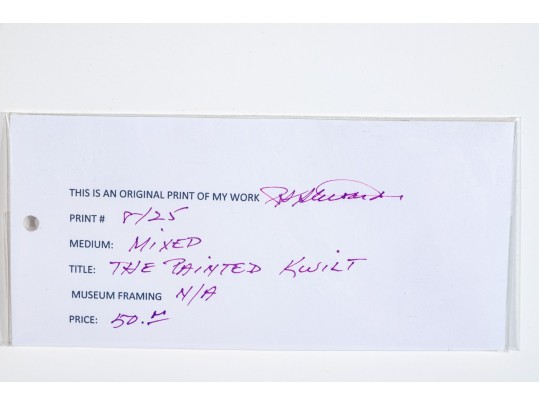 THIS IS AN ORIGINAL PRINT OF MY WORK
PRINT # 8/25
MEDIUM: MIXED
TITLE: THE PAINTED KWILT
MUSEUM FRAMING N/A
PRICE: 50.